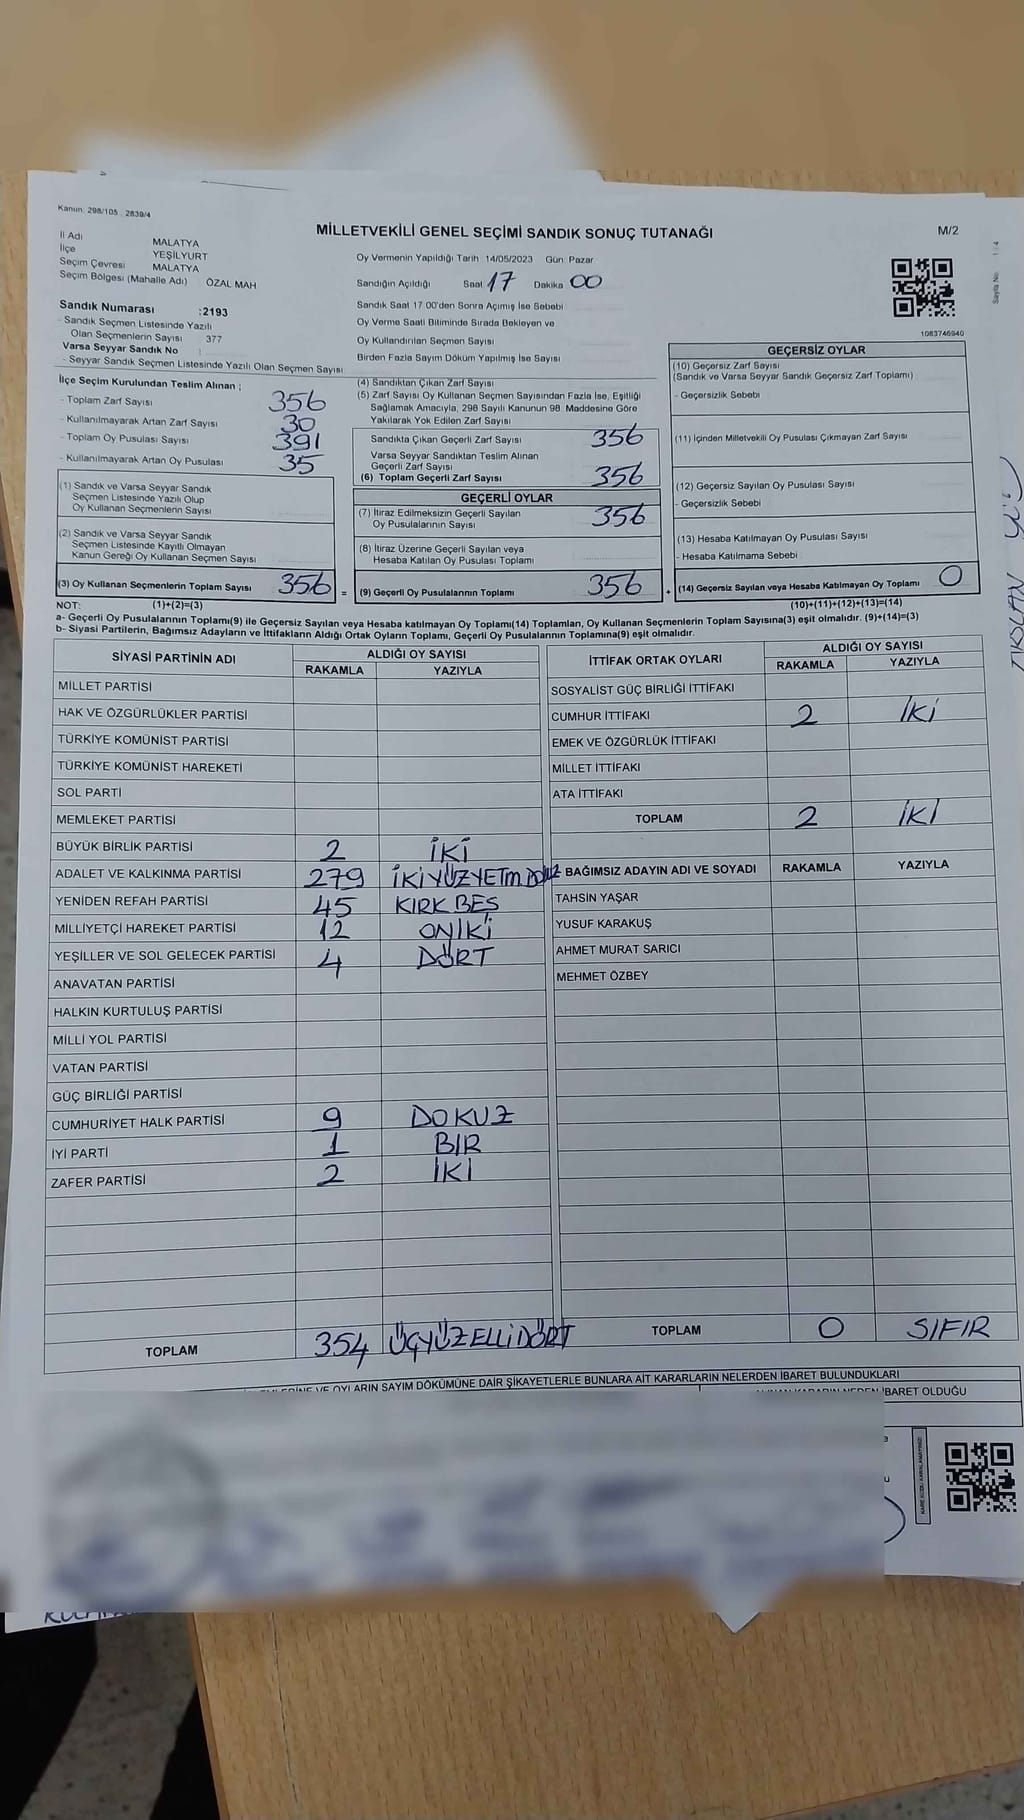 Kanun: 298/105 , 2839/4
MİLLETVEKİLİ GENEL SEÇİMİ SANDIK SONUÇ TUTANAĞI
M/2
Sayfa No: 1 / 4
İl Adı MALATYA
İlçe YEŞİLYURT
Seçim Çevresi MALATYA
Seçim Bölgesi (Mahalle Adı) ÖZAL MAH
Oy Vermenin Yapıldığı Tarih 14/05/2023 Gün: Pazar
Sandığın Açıldığı Saat 17 Dakika 00
Sandık Saat 17:00'den Sonra Açımış İse Sebebi
Oy Verme Saati Bitiminde Sırada Bekleyen ve
Oy Kullandırılan Seçmen Sayısı
Birden Fazla Sayım Döküm Yapılmış İse Sayısı
1083746940
Sandık Numarası :2193
- Sandık Seçmen Listesinde Yazılı
Olan Seçmenlerin Sayısı 377
Varsa Seyyar Sandık No :
- Seyyar Sandık Seçmen Listesinde Yazılı Olan Seçmen Sayısı
İlçe Seçim Kurulundan Teslim Alınan ;
- Toplam Zarf Sayısı 356
- Kullanılmayarak Artan Zarf Sayısı 30
- Toplam Oy Pusulası Sayısı 391
- Kullanılmayarak Artan Oy Pusulası 35
(1) Sandık ve Varsa Seyyar Sandık
Seçmen Listesinde Yazılı Olup
Oy Kullanan Seçmenlerin Sayısı
(2) Sandık ve Varsa Seyyar Sandık
Seçmen Listesinde Kayıtlı Olmayan
Kanun Gereği Oy Kullanan Seçmen Sayısı
(3) Oy Kullanan Seçmenlerin Toplam Sayısı 356 =
(4) Sandıktan Çıkan Zarf Sayısı
(5) Zarf Sayısı Oy Kullanan Seçmen Sayısından Fazla İse, Eşitliği
Sağlamak Amacıyla, 298 Sayılı Kanunun 98. Maddesine Göre
Yakılarak Yok Edilen Zarf Sayısı
Sandıkta Çıkan Geçerli Zarf Sayısı 356
Varsa Seyyar Sandıktan Teslim Alınan
Geçerli Zarf Sayısı
(6) Toplam Geçerli Zarf Sayısı 356
GEÇERLİ OYLAR
(7) İtiraz Edilmeksizin Geçerli Sayılan
Oy Pusulalarının Sayısı 356
(8) İtiraz Üzerine Geçerli Sayılan veya
Hesaba Katılan Oy Pusulası Toplamı
(9) Geçerli Oy Pusulalarının Toplamı 356 +
GEÇERSİZ OYLAR
(10) Geçersiz Zarf Sayısı
(Sandık ve Varsa Seyyar Sandık Geçersiz Zarf Toplamı)
- Geçersizlik Sebebi
(11) İçinden Milletvekili Oy Pusulası Çıkmayan Zarf Sayısı
(12) Geçersiz Sayılan Oy Pusulası Sayısı
- Geçersizlik Sebebi
(13) Hesaba Katılmayan Oy Pusulası Sayısı
- Hesaba Katılmama Sebebi
(14) Geçersiz Sayılan veya Hesaba Katılmayan Oy Toplamı 0
NOT: (1)+(2)=(3)
(10)+(11)+(12)+(13)=(14)
a- Geçerli Oy Pusulalarının Toplamı(9) ile Geçersiz Sayılan veya Hesaba katılmayan Oy Toplamı(14) Toplamları, Oy Kullanan Seçmenlerin Toplam Sayısına(3) eşit olmalıdır. (9)+(14)=(3)
b- Siyasi Partilerin, Bağımsız Adayların ve İttifakların Aldığı Ortak Oyların Toplamı, Geçerli Oy Pusulalarının Toplamına(9) eşit olmalıdır.
SİYASİ PARTİNİN ADI ALDIĞI OY SAYISI
RAKAMLA YAZIYLA
MİLLET PARTİSİ
HAK VE ÖZGÜRLÜKLER PARTİSİ
TÜRKİYE KOMÜNİST PARTİSİ
TÜRKİYE KOMÜNİST HAREKETİ
SOL PARTİ
MEMLEKET PARTİSİ
BÜYÜK BİRLİK PARTİSİ 2 İKİ
ADALET VE KALKINMA PARTİSİ 279 İKİYÜZYETM.DOKUZ
YENİDEN REFAH PARTİSİ 45 KIRK BEŞ
MİLLİYETÇİ HAREKET PARTİSİ 12 ONİKİ
YEŞİLLER VE SOL GELECEK PARTİSİ 4 DÖRT
ANAVATAN PARTİSİ
HALKIN KURTULUŞ PARTİSİ
MİLLİ YOL PARTİSİ
VATAN PARTİSİ
GÜÇ BİRLİĞİ PARTİSİ
CUMHURİYET HALK PARTİSİ 9 DOKUZ
İYİ PARTİ 1 BIR
ZAFER PARTİSİ 2 İKİ
TOPLAM 354 ÜÇYÜZELLİDÖRT
İTTİFAK ORTAK OYLARI ALDIĞI OY SAYISI
RAKAMLA YAZIYLA
SOSYALİST GÜÇ BİRLİĞİ İTTİFAKI
CUMHUR İTTİFAKI 2 İKİ
EMEK VE ÖZGÜRLÜK İTTİFAKI
MİLLET İTTİFAKI
ATA İTTİFAKI
TOPLAM 2 İKİ
BAĞIMSIZ ADAYIN ADI VE SOYADI RAKAMLA YAZIYLA
TAHSİN YAŞAR
YUSUF KARAKUŞ
AHMET MURAT SARICI
MEHMET ÖZBEY
TOPLAM 0 SIFIR
VE OYLARIN SAYIM DÖKÜMÜNE DAİR ŞİKAYETLERLE BUNLARA AİT KARARLARIN NELERDEN İBARET BULUNDUKLARI
KARARIN NEDEN İBARET OLDUĞU